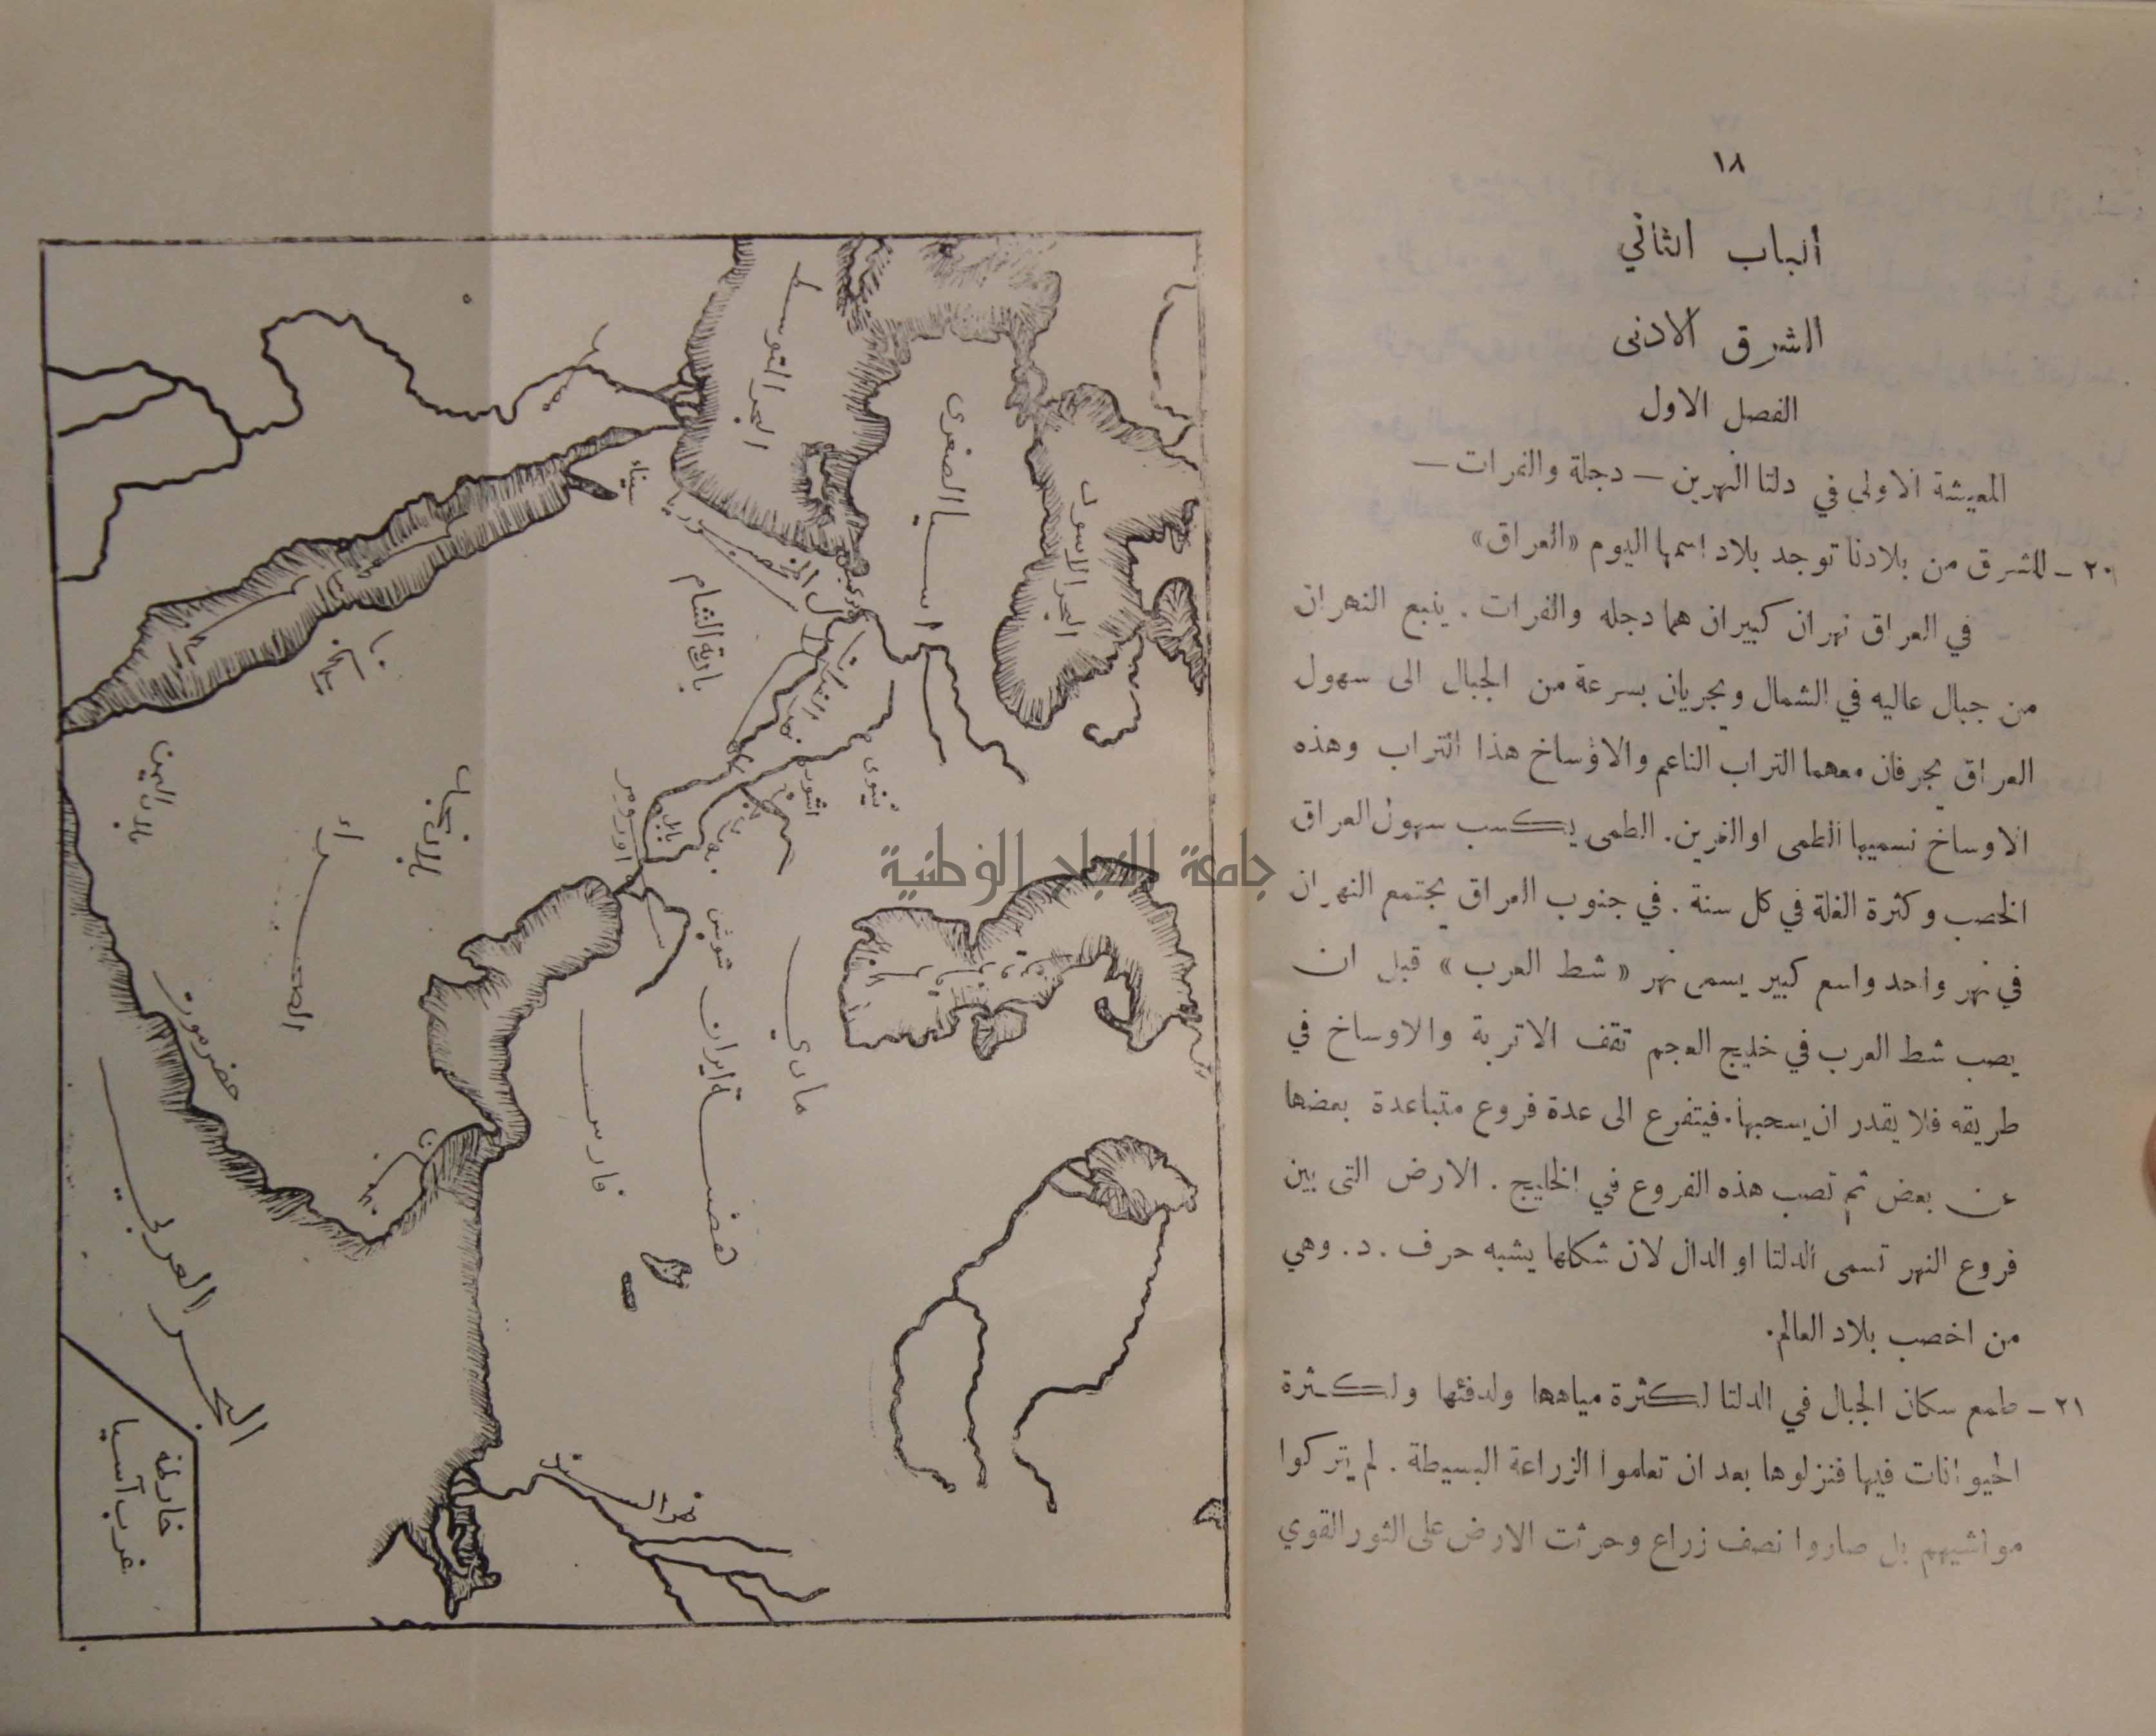 ١٨
الباب الثاني
الشرق الادنى
الفصل الاول
المعيشة الاولى في دلتا النهرين — دجلة والفرات —
٢٠ - للشرق من بلادنا توجد بلاد اسمها اليوم «العراق»
في العراق نهران كبيران هما دجله والفرات . ينبع النهران
من جبال عاليه في الشمال ويجريان بسرعة من الجبال الى سهول
العراق يجرفان معهما التراب الناعم والاوساخ هذا التراب وهذه
الاوساخ نسميها الطمى او الغرين. الطمى يكسب سهول العراق
الخصب وكثرة الغلة في كل سنة . في جنوب العراق يجتمع النهران
في نهر واحد واسع كبير يسمى نهر « شط العرب » قبل ان
يصب شط العرب في خليج العجم تقف الاتربة والاوساخ في
طريقه فلا يقدر ان يسحبها. فيتفرع الى عدة فروع متباعدة بعضها
عن بعض ثم تصب هذه الفروع في الخليج . الارض التى بين
فروع النهر تسمى الدلتا او الدال لان شكلها يشبه حرف . د . وهي
من اخصب بلاد العالم.
٢١ - طمع سكان الجبال في الدلتا لكثرة مياهها ولدفئها ولكثرة
الحيوانات فيها فنزلوها بعد ان تعلموا الزراعة البسيطة . لم يتركوا
مواشيهم بل صاروا نصف زراع وحرثت الارض على الثور القوي
جامعة النجاح الوطنية
البحر المتوسط
اسيا الصغرى
البحر الاسود
مصر
سيناء
سوريا
بادية الشام
نهر الفرات
نينوى
اشور
بابل
بلاد اليمن
بلاد نجد
الصحراء
حضرموت
عمان
شوش
هضبة ايران
مادي
فارس
البحر العربي
نهر السند
خارطة
غرب آسيا